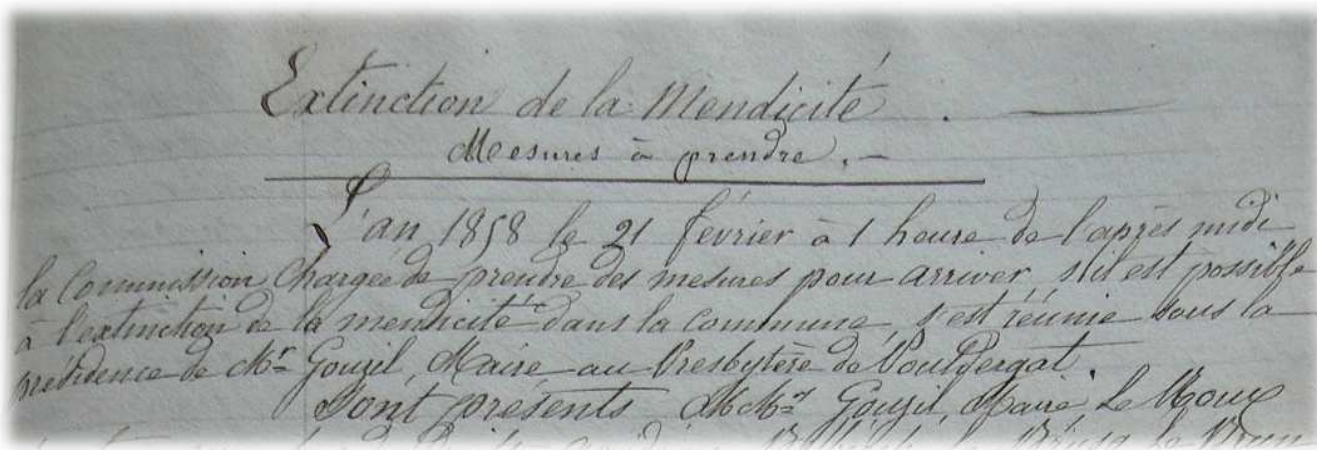 Extinction de la Mendicité. —
Mesures à prendre. —
L'an 1858 le 21 février à 1 heure de l'après midi
la Commission Chargée de prendre des mesures pour arriver, s'il est possible
à l'extinction de la mendicité dans la Commune, s'est réunie sous la
présidence de Mr Gouzil, Maire au Presbytère de Pouldergat.
Sont présents MMrs Gouzil, Maire, Le Moux